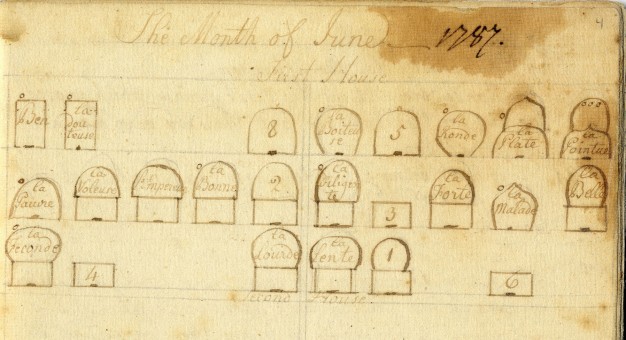 4
The Month of June 1787.
First House
Ben la dou teuse 8 la Boiteu se 5 la Ronde la Plate la Pointue
la Pauvre la Voleuse l'Empereur la Bonne 2 la Diligen te 3 la Forte la Malade la Belle
la Seconde 4 la Lourde la Lente 1 6
Second House